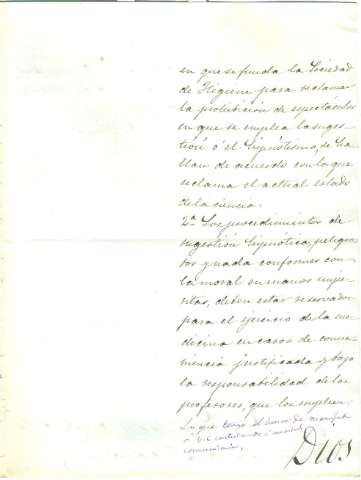 en que se funda la Sociedad
de Higiene para reclamar
la prohibición de espectáculos
en que se emplea la suges-
tión ó el hipnotismo, se ha-
llan de acuerdo con lo que
reclama el actual estado
de la ciencia.
2ª Los procedimientos de
sugestión hipnótica, peligro-
sos y nada conformes con
la moral en manos imperi-
tas, deben estar reservados
para el ejercicio de la me-
dicina en casos de conve-
niencia justificada y bajo
la responsabilidad de los
profesores, que los emplean.
Lo que tengo el honor de manifestar
á V.E. contestando á
comunicación.
Dios